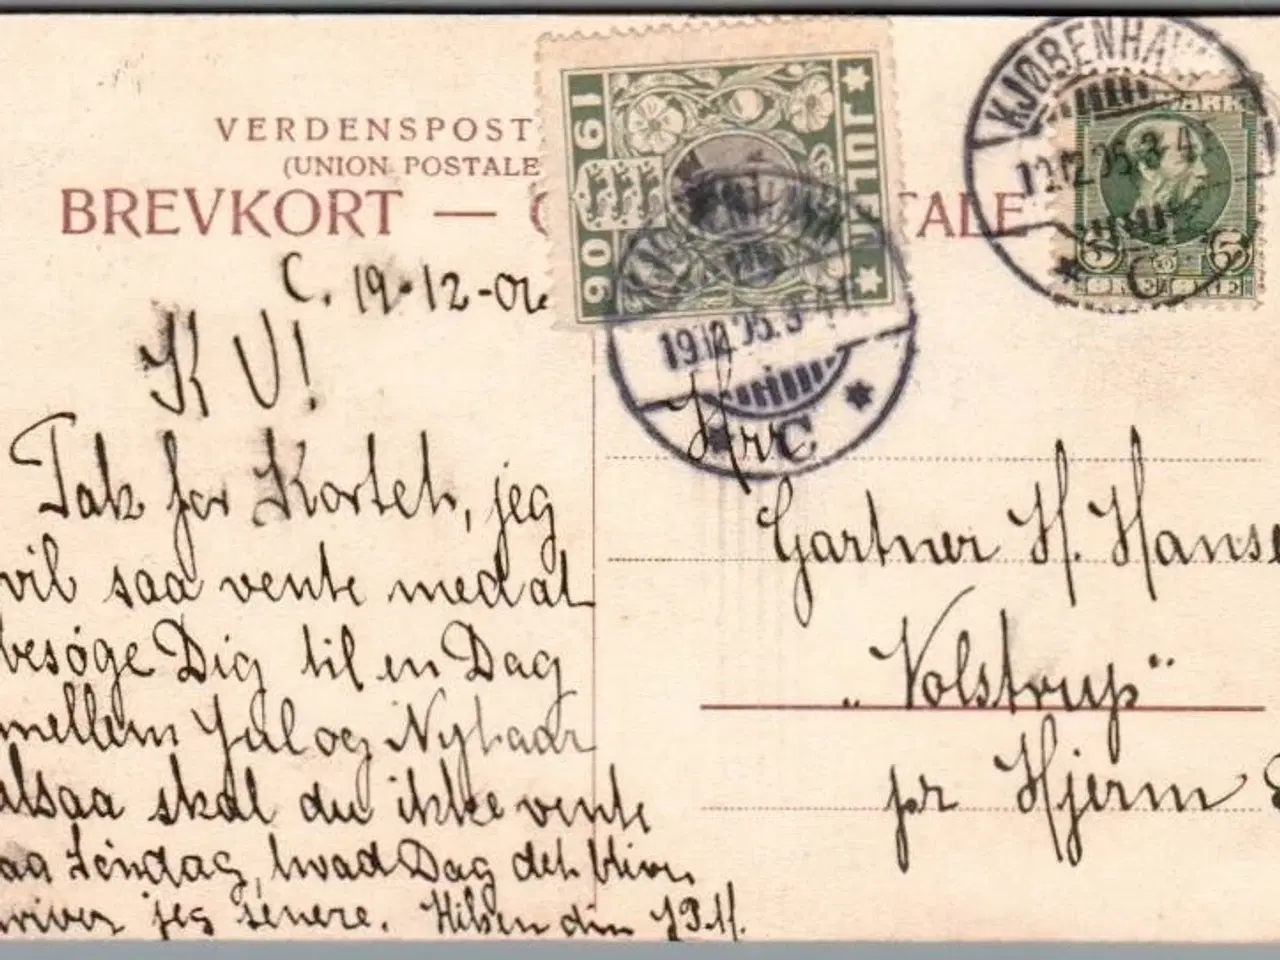 VERDENSPOST
(UNION POSTALE
BREVKORT — C TALE
1906
JULEN
KJØBENHAVN
19.12.06.3-4
C
DANMARK
5 5
ØRE
KJØBENHAVN
19.12.06.3-4
C
C. 19-12-06
K V!
Tak for Kortet, jeg
vil saa vente med at
besøge Dig til en Dag
mellem Jul og Nytaar
altsaa skal du ikke vente
paa Søndag, hvad Dag det bliver
skriver jeg senere. Hilsen din
Hrr
Gartner H. Hanse
„Volstrup"
pr Hjerm